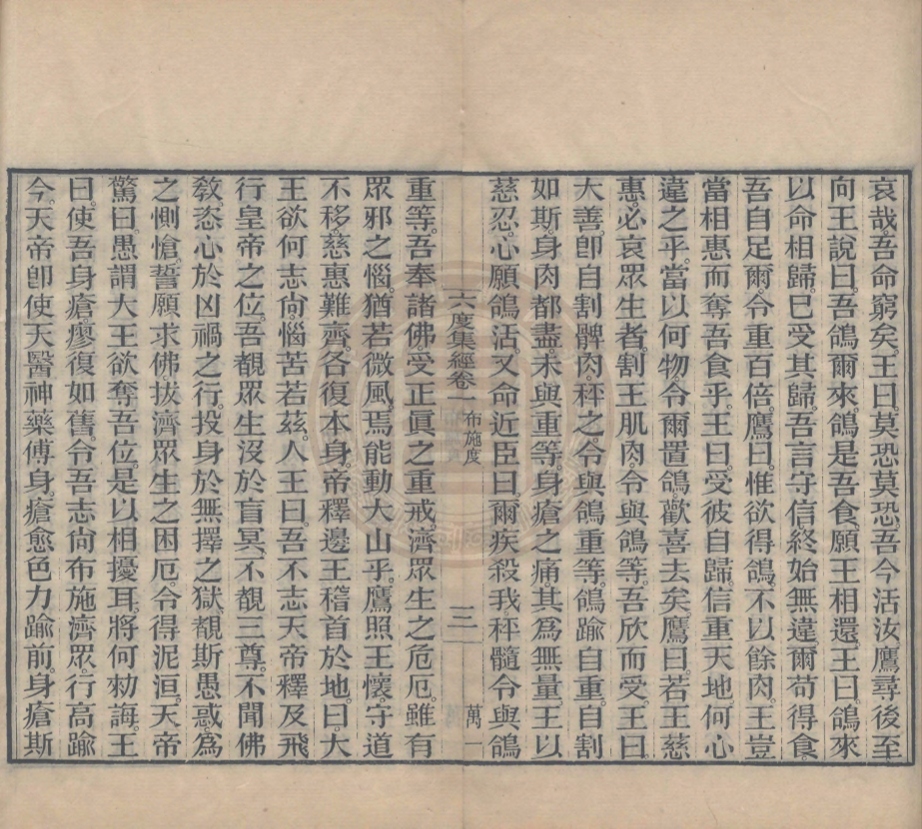 哀哉。吾命窮矣。王曰。莫恐莫恐。吾今活汝。鷹尋後至
向王說曰。吾鴿爾來。鴿是吾食。願王相還。王曰。鴿來
以命相歸。巳受其歸。吾言守信。終始無違。爾苟得食。
吾自足爾。令重百倍。鷹曰。惟欲得鴿。不以餘肉。王豈
當相惠而奪吾食乎。王曰。受彼自歸。信重天地。何心
違之乎。當以何物。令爾置鴿。歡喜去矣。鷹曰。若王慈
惠。必哀眾生者。割王肌肉。令與鴿等。吾欣而受。王曰
大善。卽自割髀肉秤之。令與鴿重等。鴿踰自重。自割
如斯。身肉都盡。未與重等。身瘡之痛。其為無量。王以
慈忍。心願鴿活。又命近臣曰。爾疾殺我。秤髓令與鴿
六度集經卷一 布施度 三 萬一
重等。吾奉諸佛。受正眞之重戒。濟眾生之危厄。雖有
眾邪之惱。猶若微風。焉能動大山乎。鷹照王懷。守道
不移。慈惠難齊。各復本身。帝釋邊王稽首於地。曰。大
王欲何志尙。惱苦若茲。人王曰。吾不志天帝釋及飛
行皇帝之位。吾覩眾生沒於盲冥。不覩三尊。不聞佛
敎。恣心於凶禍之行。投身於無擇之獄。覩斯愚惑。為
之惻愴。誓願求佛。拔濟眾生之困厄。令得泥洹。天帝
驚曰。愚謂大王欲奪吾位。是以相擾耳。將何勑誨。王
曰。使吾身瘡瘳復如舊。令吾志尙布施濟眾。行高踰
今。天帝卽使天醫神藥傅身。瘡愈色力踰前。身瘡斯